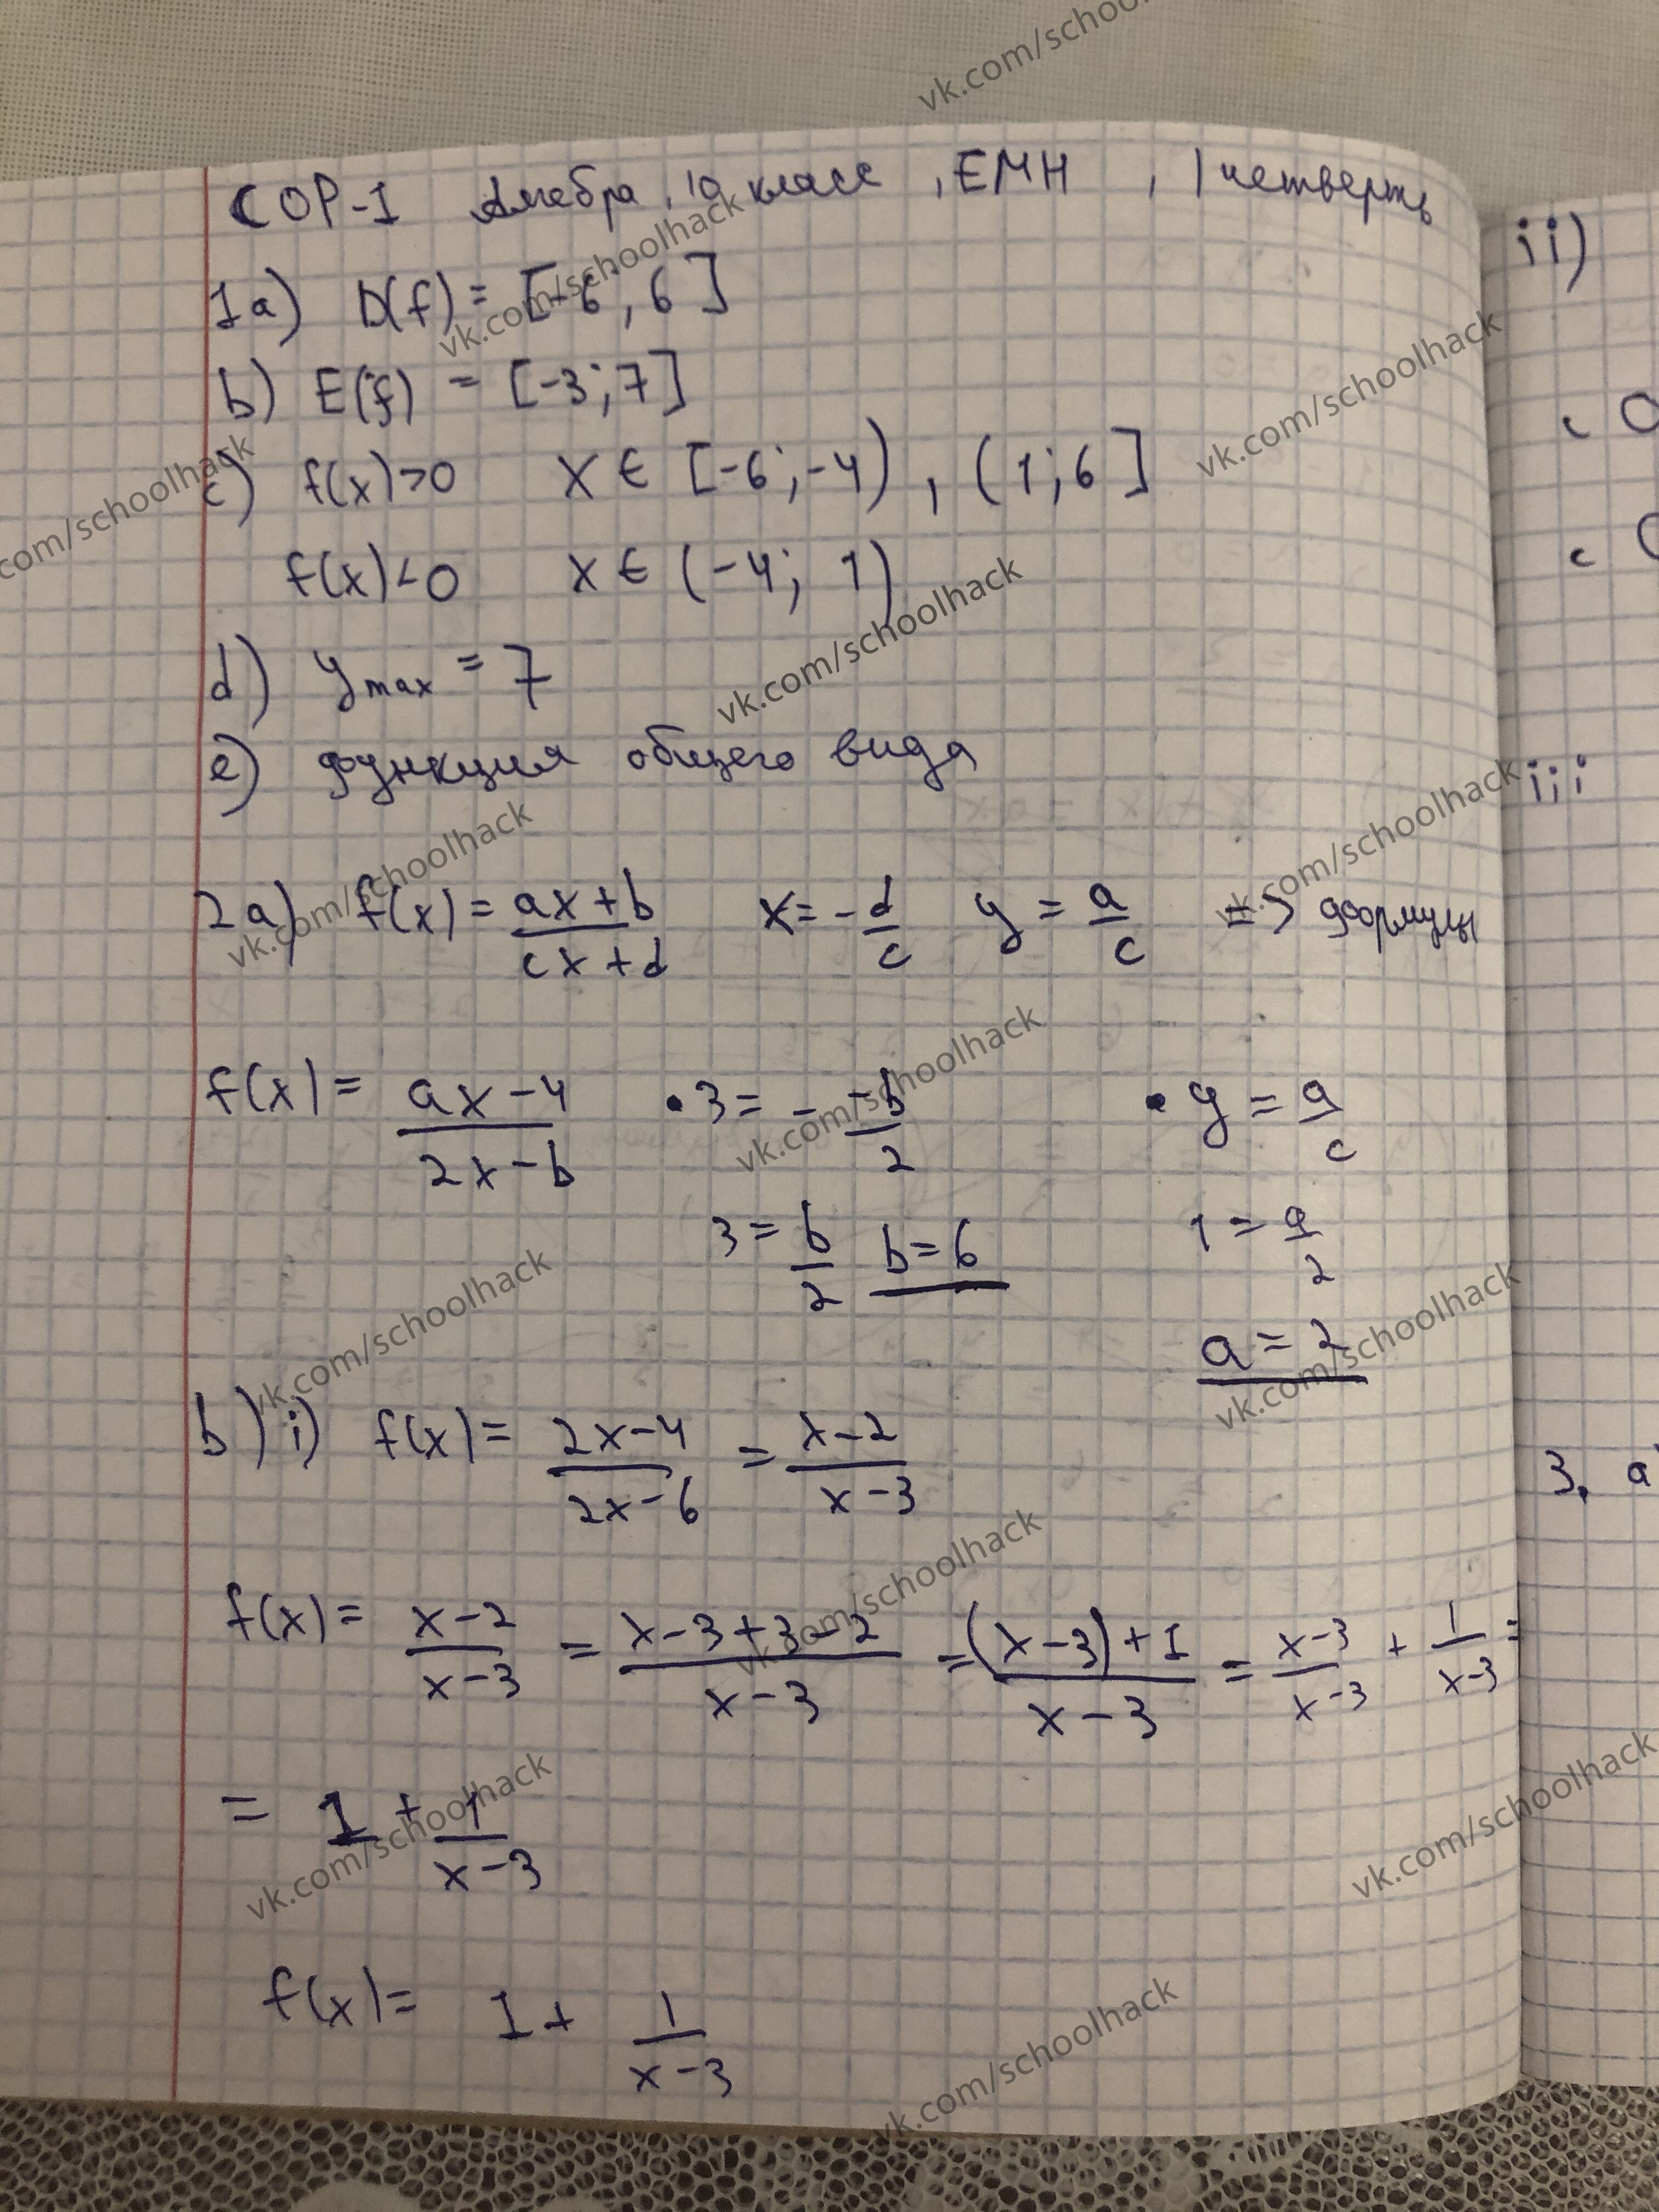 СОР-1 Алгебра, 10 класс, ЕМН, 1 четверть
1a) D(f) = [-6; 6]
b) E(f) = [-3; 7]
c) f(x)>0 x ∈ [-6; -4), (1; 6]
f(x)<0 x ∈ (-4; 1)
d) y max = 7
e) функция общего вида
2a) f(x) = (ax+b)/(cx+d) x = -d/c y = a/c => формулы
f(x) = (ax-4)/(2x-b) • 3 = - -b/2 • y = a/c
3 = b/2 b=6 1 = a/2
a = 2
b) i) f(x) = (2x-4)/(2x-6) = (x-2)/(x-3)
f(x) = (x-2)/(x-3) = (x-3+3-2)/(x-3) = ((x-3)+1)/(x-3) = (x-3)/(x-3) + 1/(x-3) =
= 1 + 1/(x-3)
f(x) = 1 + 1/(x-3)
ii)
c
c
iii
3, a
vk.com/schoolhack